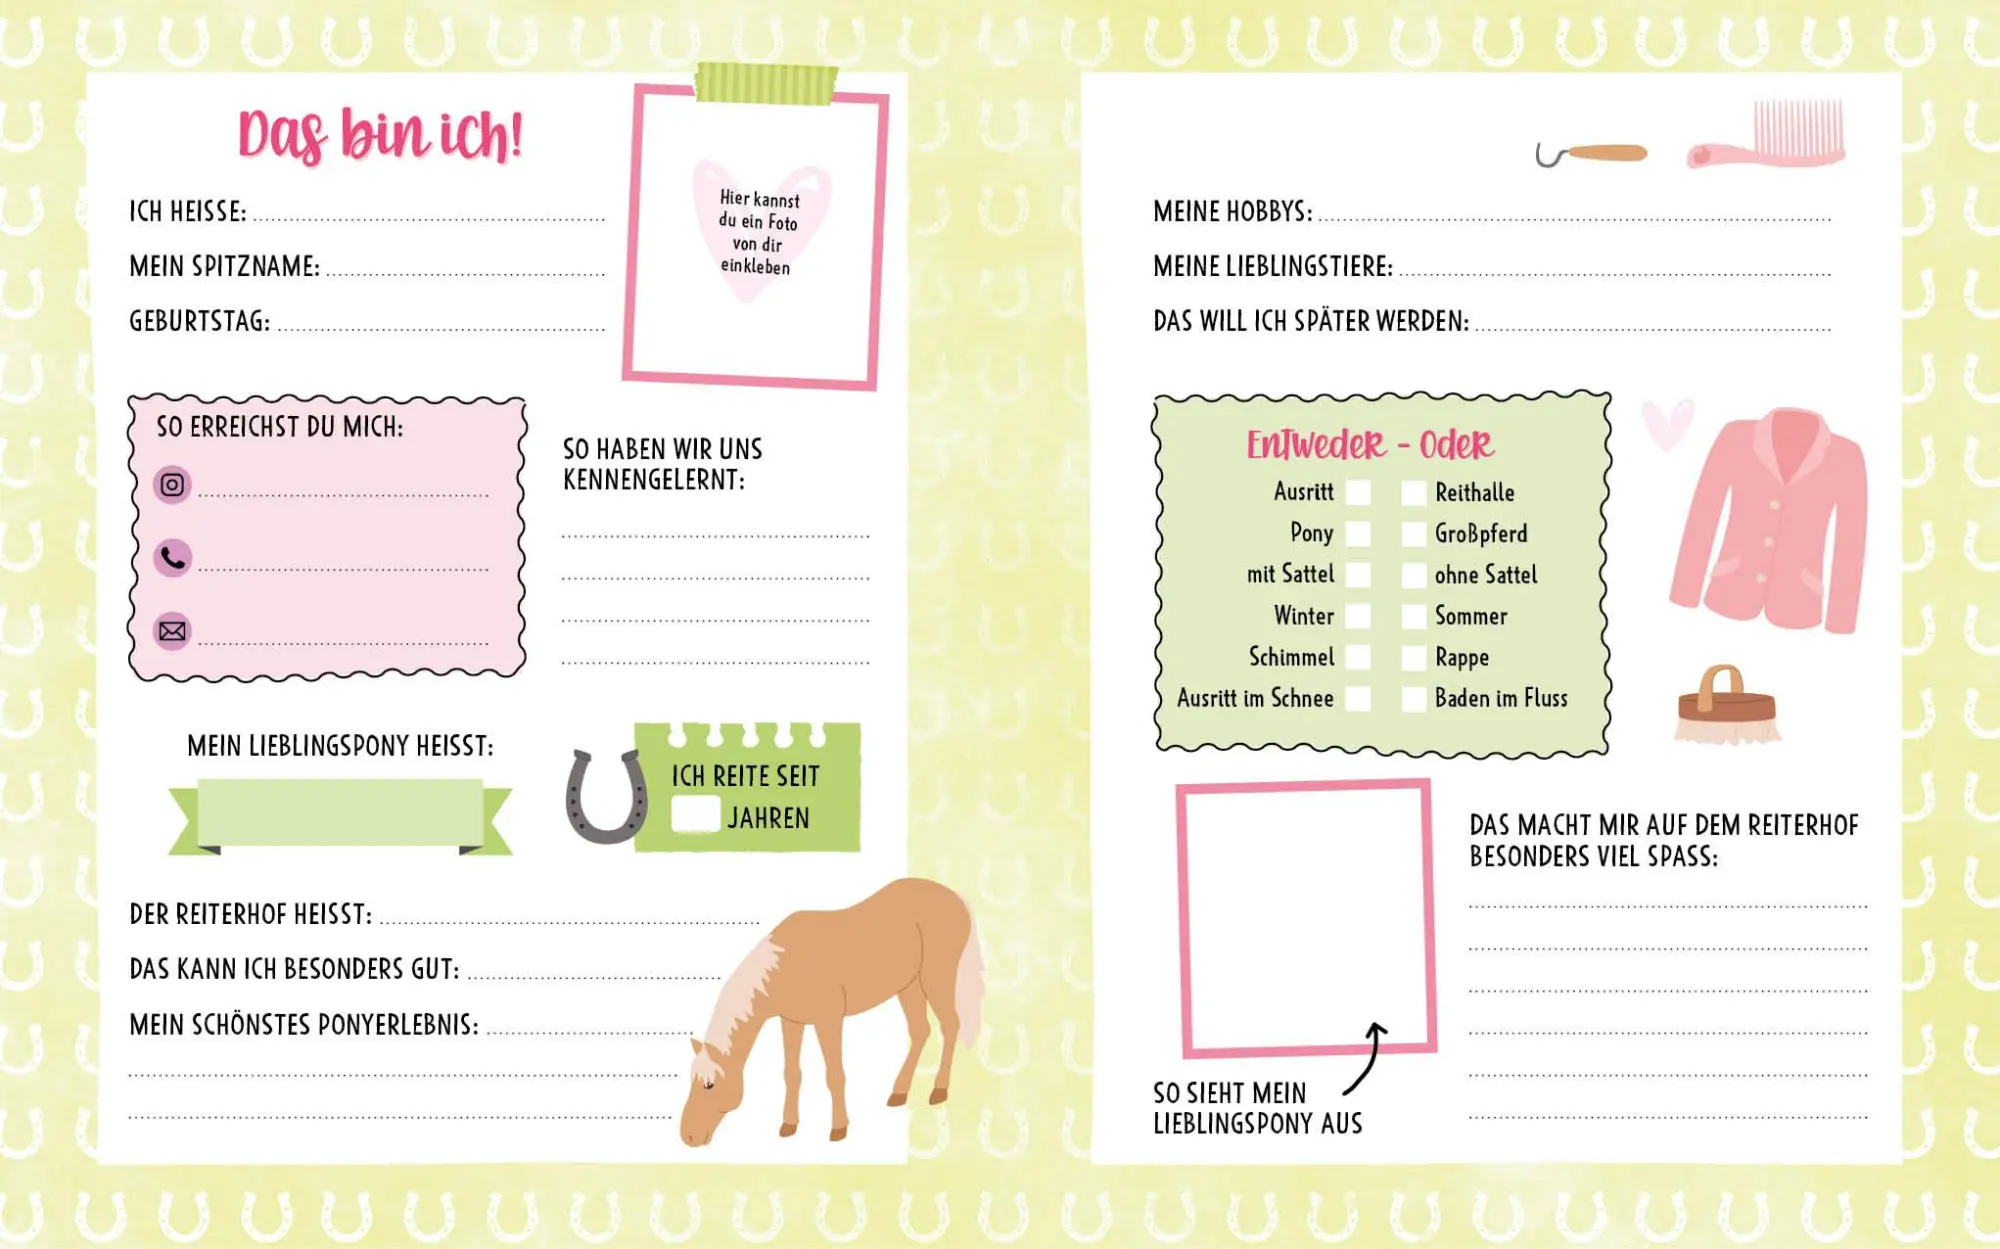 Das bin ich!
ICH HEISSE:
MEIN SPITZNAME:
GEBURTSTAG:
Hier kannst
du ein Foto
von dir
einkleben
SO ERREICHST DU MICH:
SO HABEN WIR UNS
KENNENGELERNT:
MEIN LIEBLINGSPONY HEISST:
ICH REITE SEIT
JAHREN
DER REITERHOF HEISST:
DAS KANN ICH BESONDERS GUT:
MEIN SCHÖNSTES PONYERLEBNIS:
MEINE HOBBYS:
MEINE LIEBLINGSTIERE:
DAS WILL ICH SPÄTER WERDEN:
Entweder - Oder
Ausritt Reithalle
Pony Großpferd
mit Sattel ohne Sattel
Winter Sommer
Schimmel Rappe
Ausritt im Schnee Baden im Fluss
DAS MACHT MIR AUF DEM REITERHOF
BESONDERS VIEL SPASS:
SO SIEHT MEIN
LIEBLINGSPONY AUS